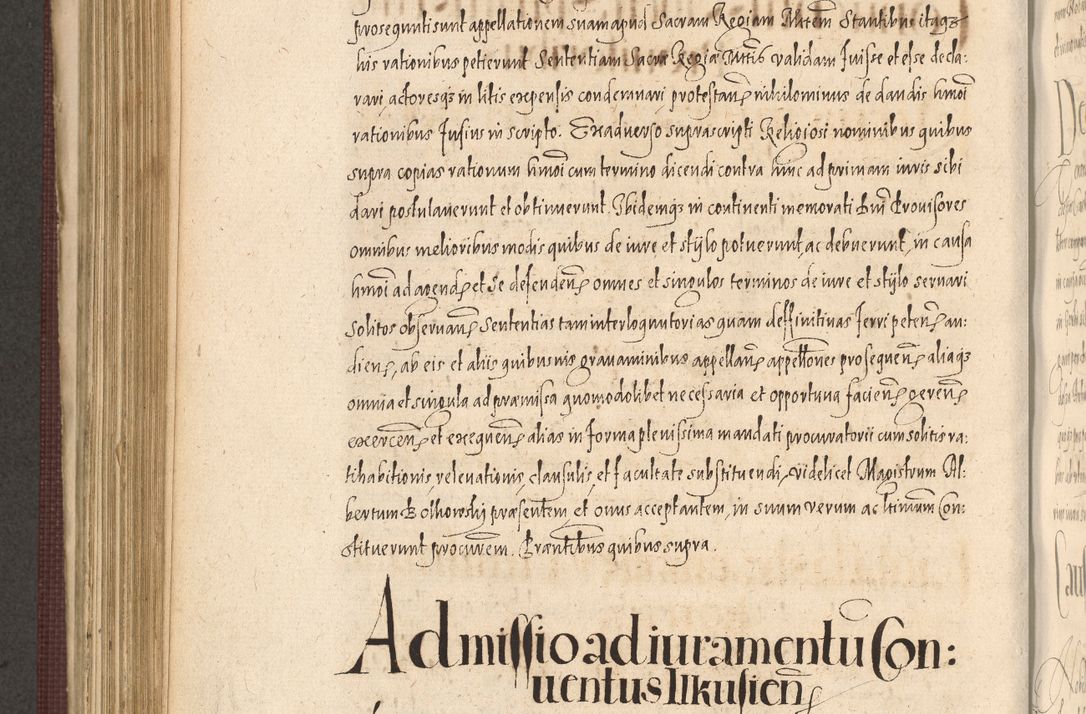 prosequuti sunt appellationem suam apud Sacram Regiam Mtem̃ Stantibus itaqȝ
his rationibus petierunt Sententiam Sacræ Regiæ Mttis validam fuisse et esse decla:
rari, actoresqȝ in litis expensis condemnari protestanȝ nihilominus de dandis hmoi
rationibus fusius in scripto. Ex adverso suprascripti Religiosi nominibus quibus
supra copias rationum hmoi cum termino dicendi contra hinc ad primam iuris sibi
dari postulaverunt et obtinuerunt. Ibidemqȝ in continenti memorati Provisores
omnibus melioribus modis quibus de iure et stijlo potuerunt, ac debuerunt, in causa
hmoi ad agendȝ et se defendenȝ omnes et singulos terminos de iure et stijlo servari
solitos observanȝ Sententias tam interloquutorias quam deffinitivas ferri petenȝ au:
dienȝ, ab eis et aliis quibusvis gravaminibus appellanȝ appellones prosequenȝ aliaqȝ
omnia et singula ad præmissa quomodolibet necessaria et opportuna facienȝ gerenȝ
exercenȝ et exequenȝ alias in forma plenissima mandati procuratorii cum solitis ra:
tihabitionis, relevationis, clausulis, et facultate substituendi, videlicet Magistrum Al:
bertum Bolhowski præsentem, et onus acceptantem, in suum verum ac ltimum Con:
stituerunt procurem. Præntibus quibus supra.
Admissio ad iuramentũ Con:
uentus Ilkusien̄